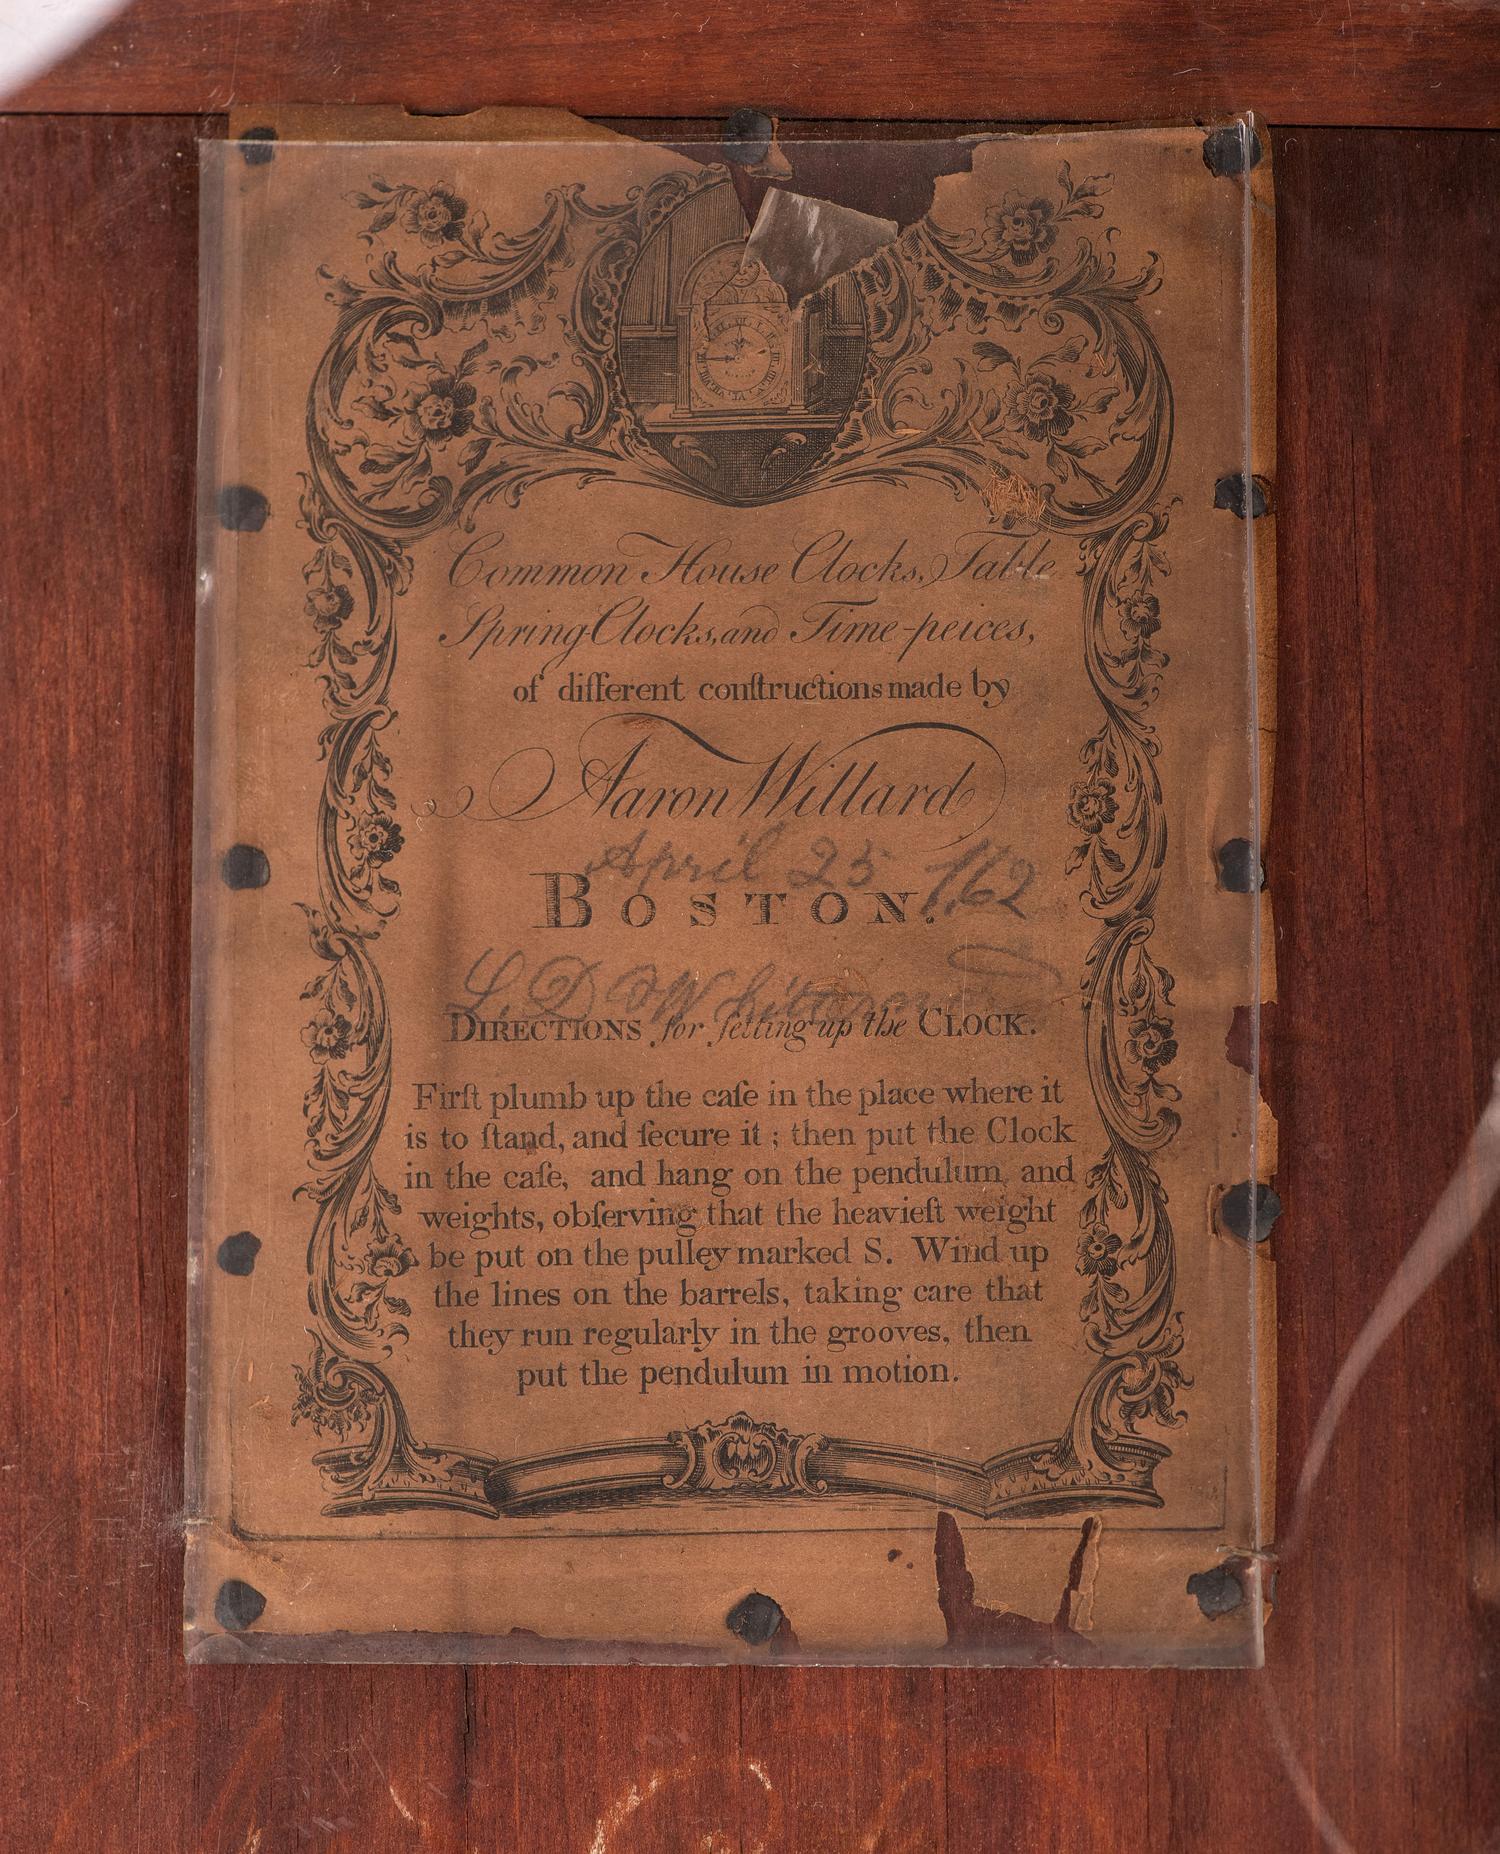 Common House Clocks, Table
Spring Clocks, and Time-peices,
of different conſtructions made by
Aaron Willard
April 25
BOSTON.
L. D.
DIRECTIONS for ſetting up the CLOCK.
Firſt plumb up the caſe in the place where it
is to ſtand, and ſecure it; then put the Clock
in the caſe, and hang on the pendulum and
weights, obſerving that the heavieſt weight
be put on the pulley marked S. Wind up
the lines on the barrels, taking care that
they run regularly in the grooves, then
put the pendulum in motion.